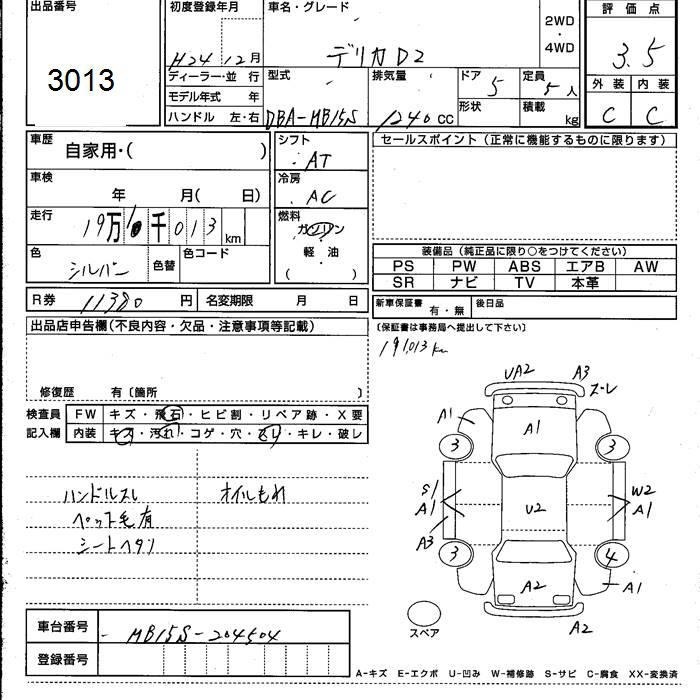 出品番号
3013
初度登録年月
H24 12月
車名・グレード
デリカD2
2WD
・
4WD
評価点
3.5
外装 内装
C C
ディーラー・並行
モデル年式 年
ハンドル 左・右
型式
DBA-MB15S
排気量
1240cc
ドア
5
形状
定員
5人
積載
kg
車歴
自家用・( )
車検
年 月( 日)
走行
19万1千013km
色
シルバー
色替
色コード
シフト
AT
冷房
AC
燃料
ガソリン
・
軽油
( )
セールスポイント(正常に機能するものに限ります)
装備品(純正品に限り○をつけてください)
PS PW ABS エアB AW
SR ナビ TV 本革
R券 11380円
名変期限 月 日
新車保証書 有・無
後日品
(保証書は事務局へ提出して下さい)
191,013km
出品店申告欄(不良内容・欠品・注意事項等記載)
修復歴 有〔箇所 〕
検査員
記入欄
FW キズ・飛石・ヒビ割・リペア跡・X要
内装 キズ・汚れ・コゲ・穴・ソリ・キレ・破レ
ハンドルスレ
ペット毛有
シートヘタリ
オイルもれ
UA2 A3
A1 A1
3 3
S1
A1
A3
U2
W2
A1
3 4
A2 A1
A2
スペア
車台番号
MB15S-204504
登録番号
A-キズ E-エクボ U-凹み W-補修跡 S-サビ C-腐食 XX-変換済